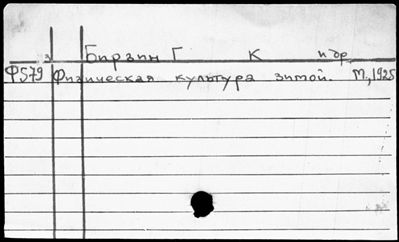 3 Бирзин Г К и др.
Ф579 Физическая культура зимой. М., 1925